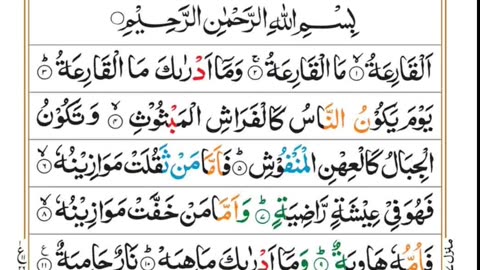 بِسْمِ اللهِ الرَّحْمٰنِ الرَّحِيْمِ
اَلْقَارِعَةُ ۙ﴿۱﴾ مَا الْقَارِعَةُ ۚ﴿۲﴾ وَمَاۤ اَدْرٰىكَ مَا الْقَارِعَةُ ؕ﴿۳﴾
يَوْمَ يَكُوْنُ النَّاسُ كَالْفَرَاشِ الْمَبْثُوْثِ ۙ﴿۴﴾ وَتَكُوْنُ
الْجِبَالُ كَالْعِهْنِ الْمَنْفُوْشِ ؕ﴿۵﴾ فَاَمَّا مَنْ ثَقُلَتْ مَوَازِيْنُهٗ ۙ﴿۶﴾
فَهُوَ فِيْ عِيْشَةٍ رَّاضِيَةٍ ؕ﴿۷﴾ وَاَمَّا مَنْ خَفَّتْ مَوَازِيْنُهٗ ۙ﴿۸﴾
فَاُمُّهٗ هَاوِيَةٌ ؕ﴿۹﴾ وَمَاۤ اَدْرٰىكَ مَا هِيَهْ ؕ﴿۱۰﴾ نَارٌ حَامِيَةٌ ﴿۱۱﴾